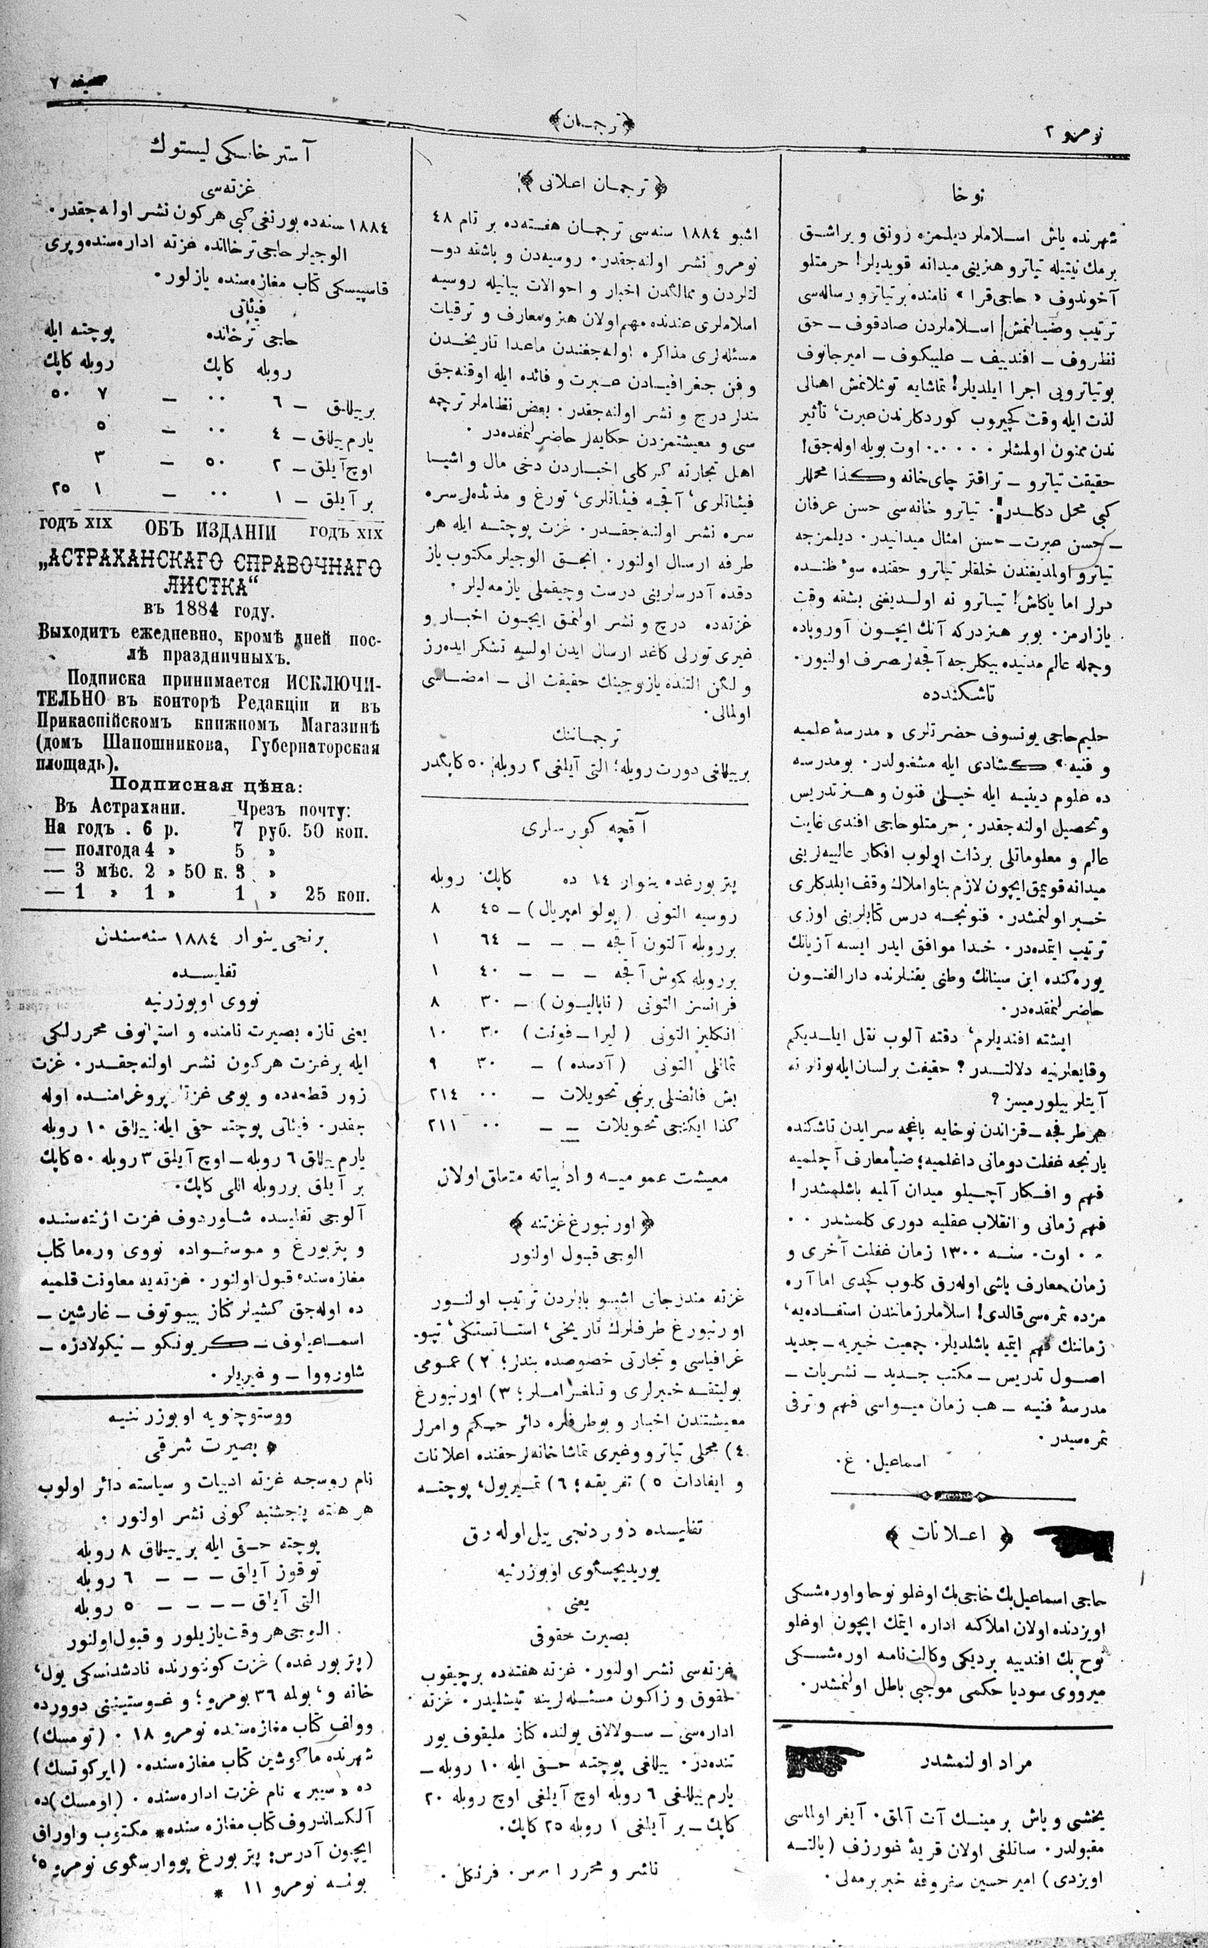 نومرو ۲
﴿ترجمان﴾
صحیفه ۷
نوخا
شهرنده یاش اسلاملر دیلمزه رونق و براشق
برمك نیتیله تیاترو هنزینی میدانه قویدیلر! حرمتلو
آخوندوف «حاجی قرا» نامنده بر تیاترو رساله‌سی
ترتیب وضیالنمش اسلاملردن صادقوف ــ حق
نظروف ــ افندییف ــ علیبكوف ــ امیرجانوف
بوتیاترویی اجرا ایلدیلر! تماشایه توپلانمش اهالی
لذت ایله وقت كچیروب كوردكلرندن عبرت، تأثیر
ندن ممنون اولمشلر ۰۰۰۰۰ اوت بویله اوله‌جق!
حقیقت تیاترو ــ تراقتر چای‌خانه وكذا محللر
كبی محمل دكلدر! تیاترو خانه‌سی حسن عرفان
ــ حسن عبرت ــ حسن امثال میدانیدر. دیلمزجه
تیاترو اولمدیغندن خلقلر تیاترو حقنده سوء ظنده
درلر اما یاكلش! تیاترو نه اولدیغنی بشقه وقت
یازارمز. بوبر هنردركه آنك ایچون آوروپاده
وجمله عالم مدنیده بیكلرجه آقچه‌لر صرف اولنیور.
تاشكندده
حلیم حاجی یونسوف حضرتلری «مدرسهٔ علمیه
و فنیه» كشادی ایله مشغولدر. بو مدرسه
ده علوم دینیه ایله خیلی فنون و هنر تدریس
و تحصیل اولنه‌جقدر. حرمتلو حاجی افندی غایت
عالم و معلوماتلی برذات اولوب افكار عالیه‌لرینی
میدانه قویمق ایچون لازم بنا و املاك وقف ایلدكلری
خبر اولنمشدر. فنونجه درس كتابلرینی اوزی
ترتیب ایتمده‌در. خدا موافق ایدر ایسه آزیانك
یوره‌كنده ابن سینانك وطنی یقنلرنده دارالفنون
حاضرلنمقده‌در.
ایشته افندیلرم، دقته آلوب نقل ایلدیكم
وقایعلر نیه دلالتدر؟ حقیقت برلسان ایله بونلر نه
آیتلر بیلورمیسز؟
هر طرفجه ــ قزاندن نوخایه باغچه سرایدن تاشكنده
یارنجه غفلت دومانی داغلمیه؛ ضیاء معارف آچلمیه
فهم و افكار آچیلو میدان آلمیه باشلمشدر!
فهم زمانی و انقلاب عقلیه دوری كلمشدر ۰۰
۰۰ اوت. سنه ۱۳۰۰ زمان غفلت آخری و
زمان معارف باشی اوله‌رق كلوب كچدی اما آره
مزده ثمره‌سی قالدی! اسلاملر زمانندن استفاده‌یه،
زماننك فهم ایتمیه باشلدیلر. جمعیت خیریه ــ جدید
اصول تدریس ــ مكتب جدید ــ نشریات ــ
مدرسهٔ فنیه ــ هب زمان میواسی فهم و ترقی
ثمره‌سیدر.
اسماعیل. غ.
﴿ اعلانات ﴾
حاجی اسماعیل بك حاجی بك اوغلو نوحا و اوره‌شسكی
اویزدنده اولان املاكنه اداره ایتمك ایچون اوغلو
نوح بك افندییه بردیكی وكالت‌نامه اوره‌شسكی
میرووی سودیا حكمی موجبی باطل اولنمشدر.
مراد اولنمشدر
یخشی و یاش بر مینك آت آلمق. آیغر اولماسی
مقبولدر. ساتلغی اولان قریهٔ غورزف (یالته
اویزدی) امیر حسین خبر برمه‌لی.
﴿ ترجمان اعلانی ﴾
اشبو ۱۸۸٤ سنه‌سی ترجمان هفته‌ده بر تام ٤۸
نومرو نشر اولنه‌جقدر. روسیه‌دن و باشقه دو‌ــ
لتلردن و ممالكدن اخبار و احوالات بیانیله روسیه
اسلاملری عندنده مهم اولان هنر و معارف و ترقیات
مسئله‌لری مذاكره اوله‌جغندن ماعدا تاریخدن
و فن جغرافیادن عبرت و فائده ایله اوقنه‌جق
بندلر درج و نشر اولنه‌جقدر. بعض نظاملر ترجمه
سی و معیشتمزدن حكایه‌لر حاضرلنمقده‌در.
اهل تجارته كركلی اخباردن دخی مال و اشیا
فیئاتلری، آقچه فیئاتلری، تورغ و مذنده‌لر سره
سره نشر اولنه‌جقدر. غزت پوچته ایله هر
طرفه ارسال اولنور. انجق الوجیلر مكتوب یاز
دقده آدرسلرینی درست و چیقملی یازمه‌لیلر.
غزته‌ده درج و نشر اولنمق ایچون اخبار و
غیری تورلی كاغد ارسال ایدن اولسه تشكر ایده‌رز
و لكن التنده یازوجینك حقیقت الی ــ امضاسی
اولمالی.
ترجماننك
بر ییللغی دورت روبله؛ التی آیلغی ۲ روبله ۵۰ كاپكدر
آقچه كورسلری
پتربورغده ینوار ۱٤ ده كاپك روبله
روسیه التونی (پولو امپریال) ــ ٤۵ ۸
بر روبله آلتون آقچه ــ ــ ــ ٦٤ ۱
بر روبله كموش آقچه ــ ــ ــ ٤۰ ۱
فرانسز التونی (ناپالیون) ــ ۳۰ ۸
انكلیز التونی (لیرا ــ فونت) ۳۰ ۱۰
عثمانلی التونی ــ ۳۰ ۹
بش فائضلی برنجی تحویلات ــ ۰۰ ۲۱٤
كذا ایكنجی تحویلات ــ ــ ۰۰ ۲۱۱
معیشت عمومیه و ادبیاته متعلق اولان
﴿ اورنبورغ غزتنه ﴾
الوجی قبول اولنور
غزته مندرجاتی اشبو بابلردن ترتیب اولنور
اورنبورغ طرفلرك تاریخی، استاتستكی، تپو‌ــ
غرافیاسی و تجارتی خصوصده بندلر؛ ۲) عمومی
پولیتقه خبرلری و تلغراملر؛ ۳) اورنبورغ
معیشتندن اخبار و بو طرفلره دائر حكم و امرلر
٤) محلی تیاترو و غیری تماشاخانه‌لر حقنده اعلانات
و ایفادات ۵) تفریقه؛ ٦) پوچته
تفلیسده دوردنجی ییل اوله‌رق
یوریدیچسكوی اوبوزرنیه
یعنی
بصیرت حقوقی
غزته‌سی نشر اولنور. غزته هفته‌ده بر چیقوب
حقوق و زاكون مسئله‌لرینه تیشلیدر. غزته
اداره‌سی ــ سولالاق یولنده كناز ملیقوف یور
تنده‌در. ییللغی پوچته حقی ایله ۱۰ روبله ــ
یارم ییللغی ٦ روبله اوچ آیلغی اوچ روبله ۲۰
كاپك ــ بر آیلغی ۱ روبله ۲۵ كاپك.
ناشر و محرر فرنكل.
آسترخانسكی لیستوك
غزته‌سی
۱۸۸٤ سنه‌ده بورنغی كبی هركون نشر اوله‌جقدر.
الوجیلر حاجی ترخانده غزته اداره‌سنده و پری
قاسپیسكی كتاب مغازه‌سنده یازلور.
فیئاتی
حاجی ترخانده پوچته ایله
روبله كاپك روبله كاپك
بر ییللق ــ ٦ ۰۰ ــ ۷ ۵۰
یارم ییللق ــ ٤ ۰۰ ــ ۵
اوچ آیلق ــ ۲ ۵۰ ــ ۳
بر آیلق ــ ۱ ۰۰ ــ ۱ ۲۵
годъ XIX ОБЪ ИЗДАНІИ годъ XIX
„АСТРАХАНСКАГО СПРАВОЧНАГО
ЛИСТКА“
въ 1884 году.
Выходитъ ежедневно, кромѣ дней пос-
лѣ праздничныхъ.
Подписка принимается ИСКЛЮЧИ-
ТЕЛЬНО въ конторѣ Редакціи и въ
Прикаспійскомъ книжномъ Магазинѣ
(домъ Шапошникова, Губернаторская
площадь).
Подписная цѣна:
Въ Астрахани. Чрезъ почту:
На годъ . 6 р. 7 руб. 50 коп.
— полгода 4 » 5 »
— 3 мѣс. 2 » 50 к. 3 »
— 1 » 1 » 1 » 25 коп.
برنجی ینوار ۱۸۸٤ سنه‌سندن
تفلیسده
نووی اوبوزرنیه
یعنی تازه بصیرت نامنده و استپانوف محررلكی
ایله بر غزت هركون نشر اولنه‌جقدر. غزت
زور قطعه‌ده و یومی غزتلر پروغرامنده اوله
جقدر. فیئاتی پوچته حقی ایله: ییللق ۱۰ روبله
یارم ییللق ٦ روبله ــ اوچ آیلق ۳ روبله ۵۰ كاپك
بر آیلق بر روبله اللی كاپك.
آلوجی تفلیسده شاوردوف غزت ازنته‌سنده
و پتربورغ و موستواده نووی وره‌ما كتاب
مغازه‌سنده قبول اولنور. غزته‌یه معاونت قلمیه
ده اوله‌جق كشیلر كناز بیبوتوف ــ غارشین ــ
اسماعیلوف ــ كریونكو ــ نیكولادزه ــ
شاوروا ــ و غیریلر.
ووستوچنویه اوبوزرنییه
﴿ بصیرت شرقی
نام روسجه غزته ادبیات و سیاسته دائر اولوب
هر هفته پنجشنبه كونی نشر اولنور.
پوچته حقی ایله بر ییللق ۸ روبله
توقوز آیلق ــ ــ ــ ٦ روبله
التی آیلق ــ ــ ــ ــ ۵ روبله
الوجی هر وقت یازیلور و قبول اولنور
(پتربورغده) غزت كونتورنده نادژدنسكی یول،
خانه و، بولمه ۳٦ نومرو؛ و غوستیننی دوورده
وولف كتاب مغازه‌سنده نومرو ۱۸. (تومسك)
شهرنده ماكوشین كتاب مغازه‌سنده. (ایركوتسك)
ده «سیبیر» نام غزت اداره‌سنده. (اومسك) ده
آلكساندروف كتاب مغازه‌سنده* مكتوب و اوراق
ایچون آدرس: پتربورغ پووارسكوی نومرو ۵،
نومرو ۱۱ *